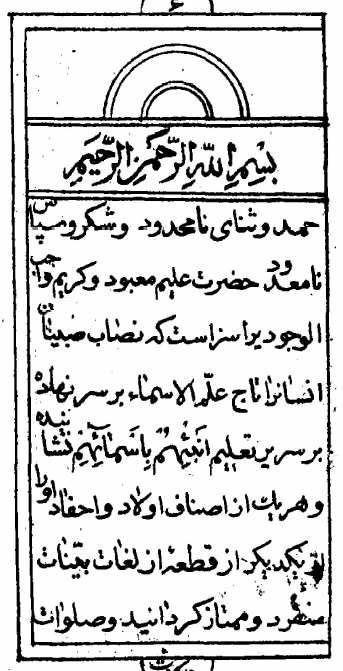 بسم الله الرحمن الرحیم
حمد وثنای نامحدود وشکر وسپاس
نامعدود حضرت علیم معبود وکریم واجب
الوجودیرا سزاست که نصاب صبیان
انسانرا تاج علّم الاسماء بر سر نهاده
بر سریر تعلیم انبئهم باسمائهم نشانیده
وهریک از اصناف اولاد واحفاد اورا
از یکدیکر از قطعهٔ از لغات بیّنات
منفرد وممتاز کردانید وصلوات